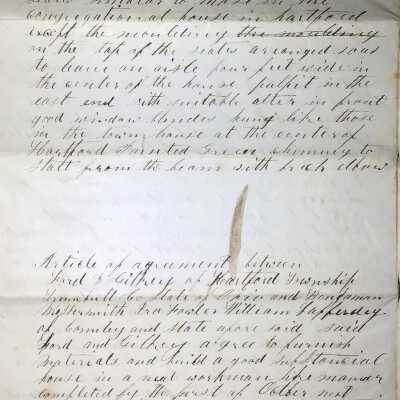 similar to those in the
Congregational house in hartford
except the moulding the moulding
on the top of the seats arranged so as
to leave an aisle four feet wide in
the center of the house pulpit in the
east end with suitable alter in front
good window blindes hung like those
in the town house at the center of
Hartford Painted Green chimney to
start from the beam with brick
Article of agreement between
Ford & Gilkey of Hartford Township
Trumbull Co State of Ohio and Benjaman
Ira Fowler William
of County and State afore said said
Ford and Gilkey agree to furnish
materials and build a good substancial
house in a neat workman like manner
completed by the first of Octber next